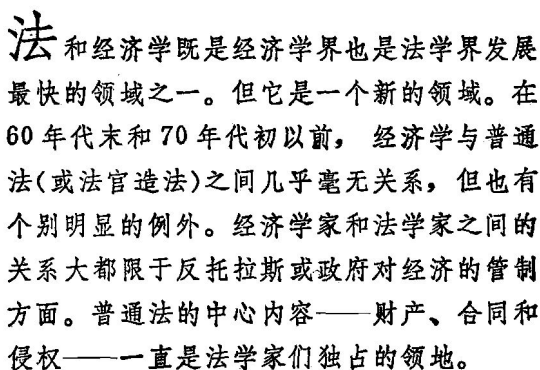 法和经济学既是经济学界也是法学界发展
最快的领域之一。但它是一个新的领域。在
60年代末和70年代初以前，经济学与普通
法(或法官造法)之间几乎毫无关系，但也有
个别明显的例外。经济学家和法学家之间的
关系大都限于反托拉斯或政府对经济的管制
方面。普通法的中心内容——财产、合同和
侵权——一直是法学家们独占的领地。